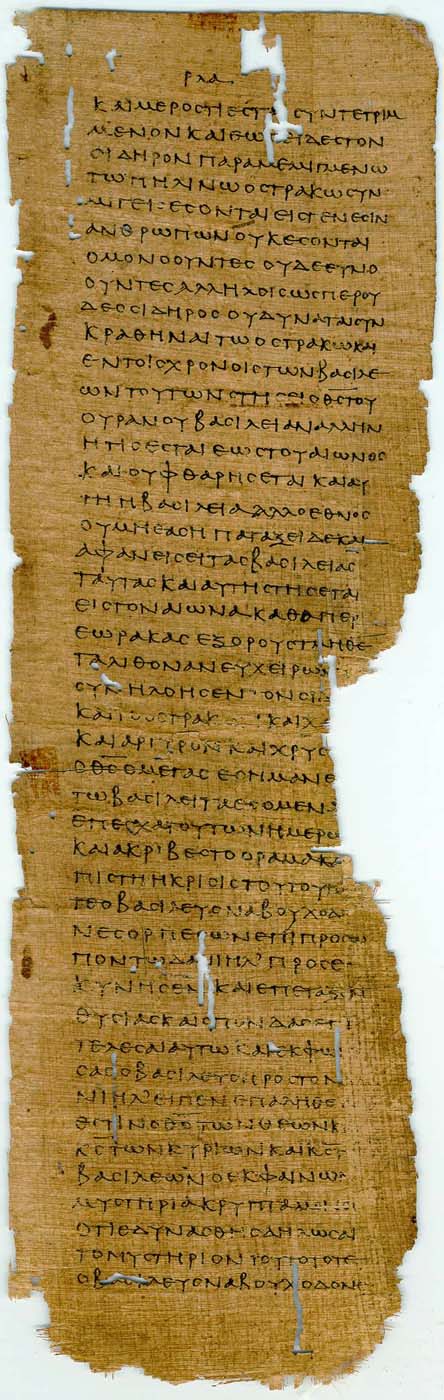 ρλα
ΚΑΙΜΕΡΟCΤΙΕCΤΑΙ CΥΝΤΕΤΡΙΜ
ΜΕΝΟΝΚΑΙΕΩC ΕΙΔΕCΤΟΝ
CΙΔΗΡΟΝΠΑΡΑΜΕΜΙΓΜΕΝΩ
ΤΩΠΗΛΙΝΩΟCΤΡΑΚΩCΥΝ
ΜΙΓΕΙCΕCΟΝΤΑΙΕΙCΓΕΝΕCΙΝ
ΑΝΘΡΩΠΩΝΟΥΚΕCΟΝΤΑΙ
ΟΜΟΝΟΟΥΝΤΕC ΟΥΔΕΕΥΝΟ
ΟΥΝΤΕCΑΛΛΗΛΟΙCΩCΠΕΡΟΥ
ΔΕΟCΙΔΗΡΟC ΟΥΔΥΝΑΤΑΙCΥΝ
ΚΡΑΘΗΝΑΙΤΩΟCΤΡΑΚΩΚΑΙ
ΕΝΤΟΙCΧΡΟΝΟΙCΤΩΝΒΑCΙΛΕ
ΩΝΤΟΥΤΩΝCΤΗCΕΙΟΘ̅C̅ΤΟΥ
ΟΥΡΑΝΟΥΒΑCΙΛΕΙΑΝΑΛΛΗΝ
ΗΤΙCΕCΤΑΙΕΩCΤΟΥΑΙΩΝΟC
ΚΑΙΟΥΦΘΑΡΗCΕΤΑΙ ΚΑΙΑΥ
ΤΗΗΒΑCΙΛΕΙΑΑΛΛΟΕΘΝΟC
ΟΥΜΗΕΑCΗ ΠΑΤΑΞΕΙΔΕΚΑΙ
ΑΦΑΝΕΙCΕΙΤΑCΒΑCΙΛΕΙΑC
ΤΑΥΤΑCΚΑΙΑΥΤΗCΤΗCΕΤΑΙ
ΕΙCΤΟΝΑΙΩΝΑ ΚΑΘΑΠΕΡ
ΕΩΡΑΚΑC ΕΞΟΡΟΥCΤΜΗΘΕ
ΤΑΛΙΘΟΝΑΝΕΥΧΕΙΡΩΝ
CΥΝΗΛΟΗCΕΝΤΟΝCΙΔ
ΚΑΙΤΟΟCΤΡΑΚΟΝΚΑΙΧΑ
ΚΑΙΑΡΓΥΡΟΝΚΑΙΧΡΥC
ΟΘ̅C̅ΟΜΕΓΑC ΕCΗΜΑΝΕ
ΤΩΒΑCΙΛΕΙΤΑΕCΟΜΕΝΑ
ΕΠΕCΧΑΤΟΥΤΩΝΗΜΕΡΩ
ΚΑΙΑΚΡΙΒΕCΤΟΟΡΑΜΑΚΑΙ
ΠΙCΤΗΗΚΡΙCΙCΤΟΥΤΟΥΤΟ
ΤΕΟΒΑCΙΛΕΥCΝΑΒΟΥΧΟΔΟ
ΝΕCΟΡΠΕCΩΝΕΠΙΠΡΟCΩ
ΠΟΝΤΩΔΑΝΙΗΛ ΠΡΟCΕ
ΚΥΝΗCΕΝ ΚΑΙΕΠΕΤΑΞΕΝ
ΘΥCΙΑCΚΑΙCΠΟΝΔΑCΕΠΙ
ΤΕΛΕCΑΙΑΥΤΩ ΚΑΙΕΚΦΩ
CΑCΟΒΑCΙΛΕΥCΠΡΟCΤΟΝ
ΝΙΗΛ ΕΙΠΕΝΕΠΑΛΗΘΕ
ΘCΤΙΝΟΘ̅C̅ΤΩΝΘΕΩΝΚ
Κ̅C̅ΤΩΝΚΥΡΙΩΝΚΑΙΚ̅C̅Τ
ΒΑCΙΛΕΩΝΟΕΚΦΑΙΝΩΝ
ΜΥCΤΗΡΙΑΚΡΥΠΤΑΜΟΝΟC
ΟΤΙΕΔΥΝΑCΘΗCΔΗΛΩCΑΙ
ΤΟΜΥCΤΗΡΙΟΝΤΟΥΤΟΤΟΤΕ
ΟΒΑCΙΛΕΥCΝΑΒΟΥΧΟΔΟΝΕ